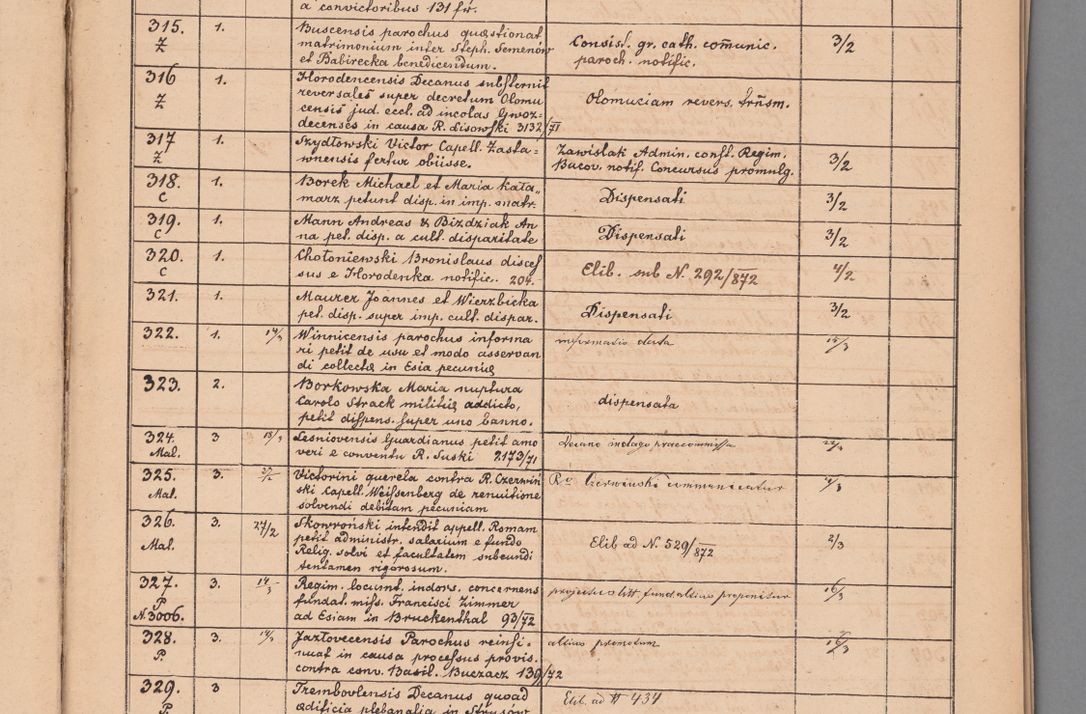 a convictoribus 131 fr.
315. 1. Buscensis parochus quæstionat
Z matrimonium inter Steph. Semenów Consist. gr. cath. com̄unic. 3/2
et Babirecka benedicendum. paroch. notific.
316 1. Horodencensis Decanus substernit
Z reversales super decretum Olomu Olomuciam revers. trn̄sm.
censis jud. eccl. ad incolas Gwoz=
decenses in causa R. Lisowski 3132/71
317 1. Szydłowski Victor Capell. Zasta= Zawislak Admin. const. Regim. 3/2
Z wnensis fertur obiisse. Bucov. notif. Concursus promulg.
318. 1. Borek Michael et Maria Kata„ Dispensati 3/2
C marz petunt disp. in imp. matr.
319. 1. Mann Andreas & Bizdziak An Dispensati 3/2
C na pet. disp. a cult. disparitate
320. 1. Chołoniewski Bronislaus disces Elib. sub N. 292/872 4/2
C sus e Horodenka notific. 204.
321. 1. Maurer Joannes et Wierzbicka Dispensati 3/2
pet. disp. super imp. cult. dispar.
322. 1. 14/3 Winnicensis parochus informa informatio data 15/3
ri petit de usu et modo asservan
di collectæ in Esia pecuniæ
323. 2. Borkowska Maria nuptura
Carolo Strack militiæ addicto, dispensata
petit dispens. super uno banno.
324. 3 Lesniovensis Guardianus petit amo Decano indago praecommissa
Mal. veri e conventu R. Suski 2173/71
325. 3. Victorini querela contra R. Czerwiń communicatur
Mal. ski Capell. Weissenberg de renuitione
solvendi debitam pecuniam
326. 3. 27/2 Skowroński intendit appell. Romam
Mal. petit administr. salarium e fundo Elib ad N. 529/872 2/3
Relig. solvi et facultatem subeundi
tentamen rigorosum.
327. 3. 14/3 Regim. locumt. indors. concernens 16/3
P. fundat. miss. Francisci Zimmer
N. 3006. ad Esiam in Bruckenthal 93/72
328. 3. Jazłovecensis Parochus reinsi. altius promotum
P. nuat in causa processus provis.
contra conv. Basil. Buczacz 139/72
329. 3 Trembovlensis Decanus quoad Elib. ad # 434
P. ædificia plebanalia in Strusów